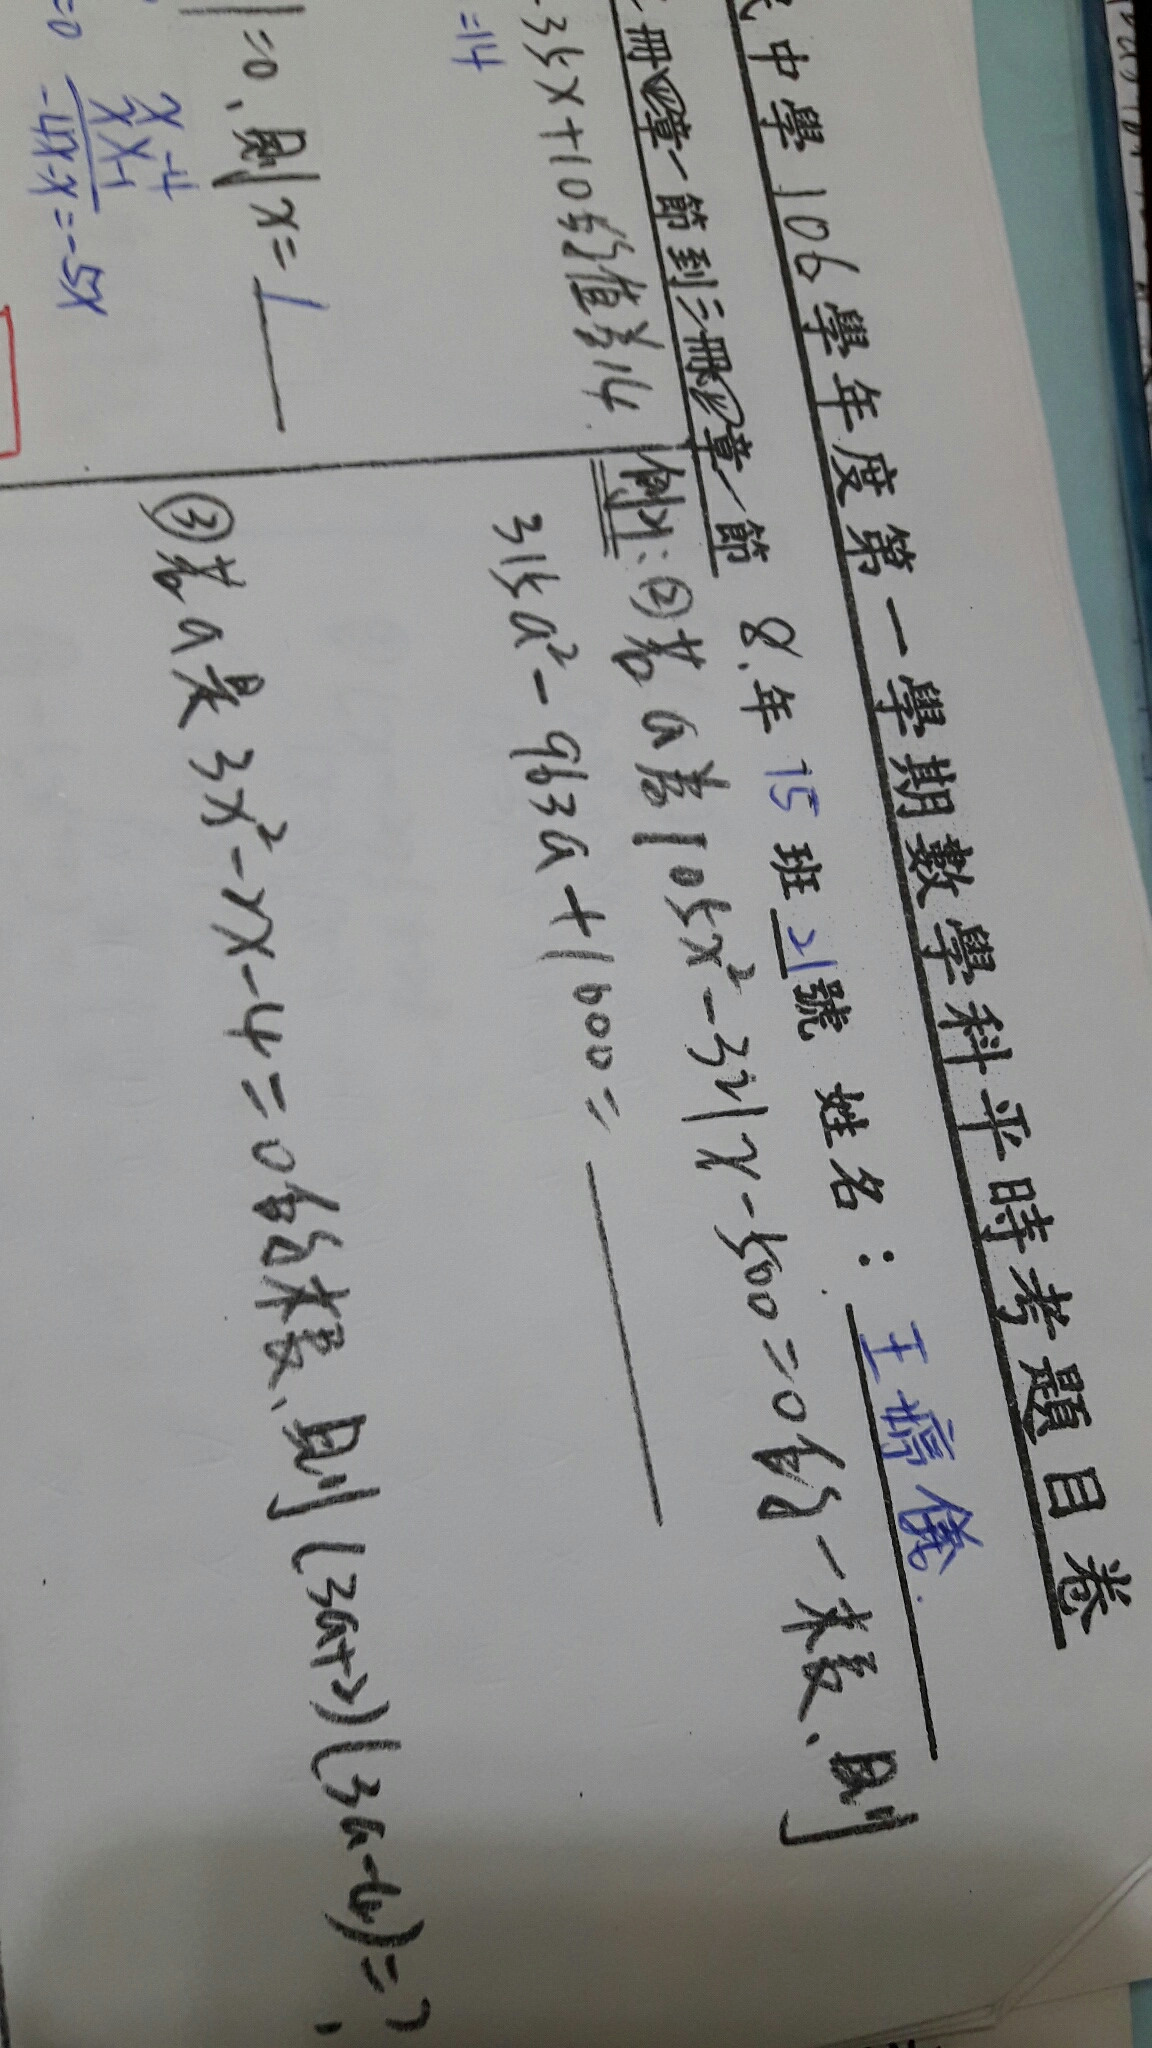 中學106學年度第一學期數學科平時考題目卷
冊四章一節到三冊四章一節 8年15班21號 姓名:王婷儀
35x+10的值為14
=14
=0、則x=1
x -4
x x -1
-4x-x=-5x
=0
例:②若a為105x²-321x-500=0的一根,則
315a²-963a+1600=
③若a是3x²-2x-4=0的根,則(3a+2)(3a-4)=?